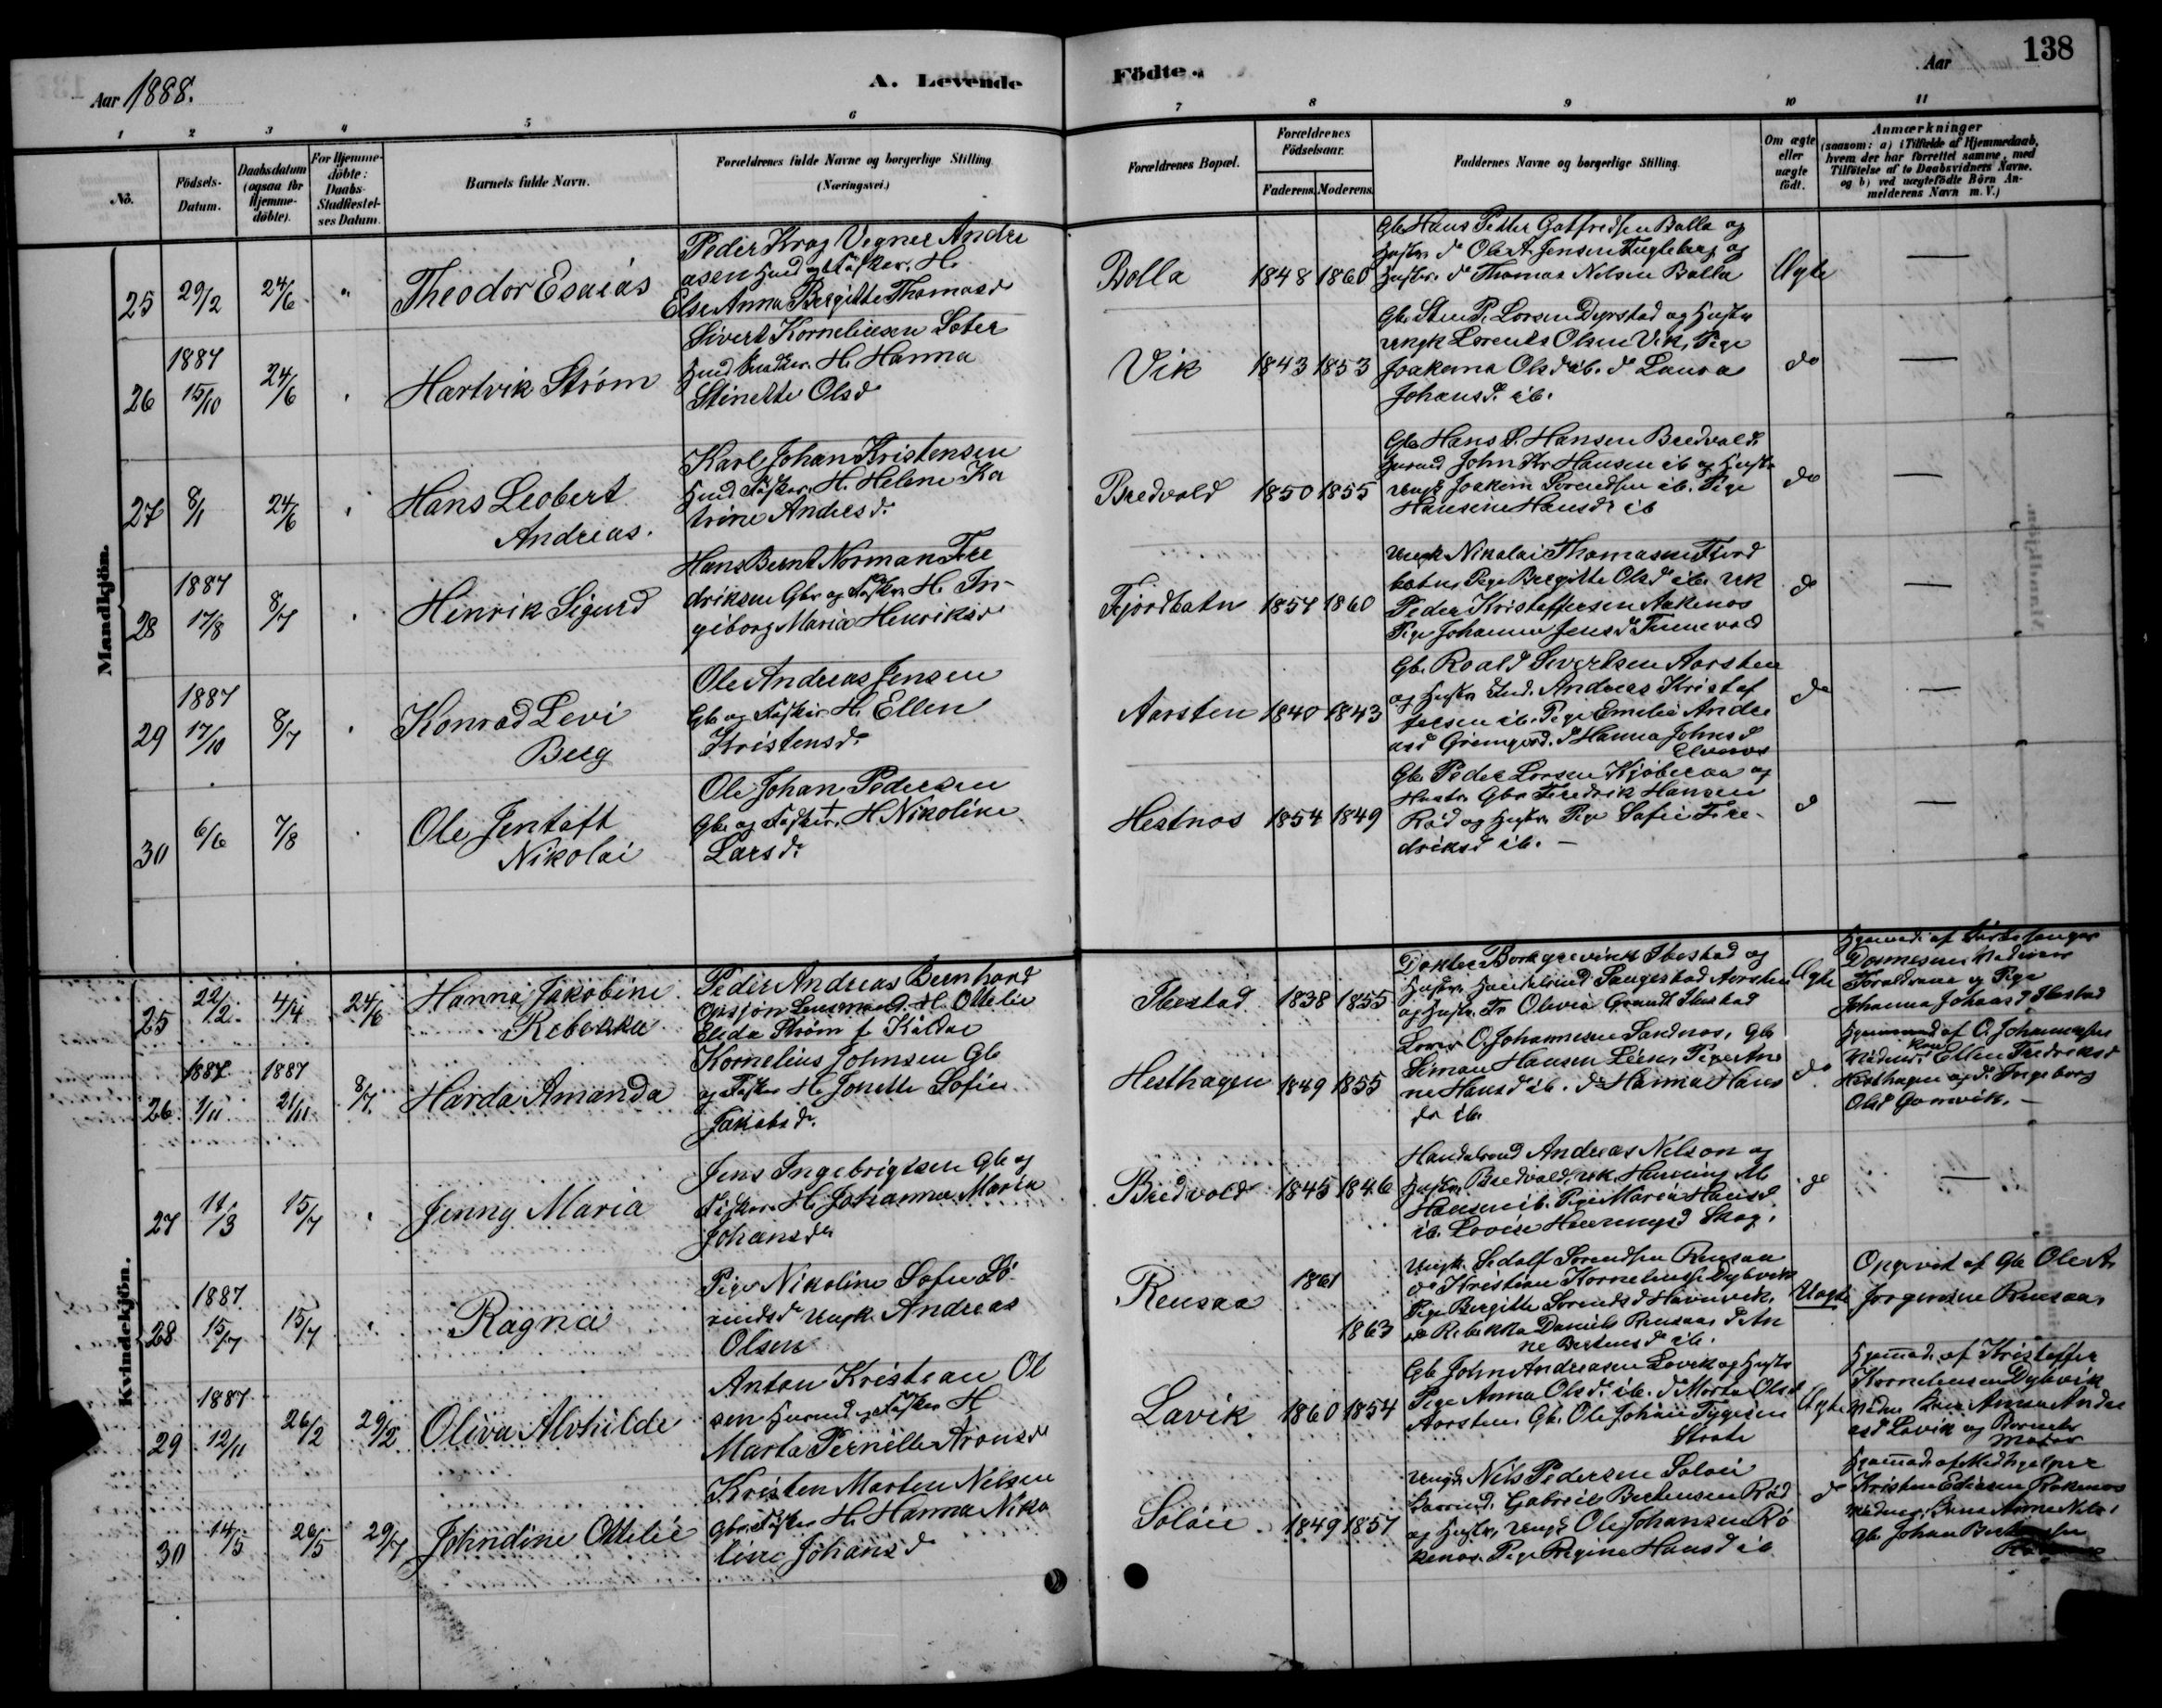 Aar 1888.
A. Levende
Födte.
Aar
138
1 2 3 4 5 6 7 8 9 10 11
No.
Födsels-Datum.
Daabsdatum (ogsaa for Hjemme-döbte).
For Hjemme-döbte: Daabs-Stadfæstel-ses Datum.
Barnets fulde Navn.
Forældrenes fulde Navne og borgerlige Stilling (Næringsvei.)
Forældrenes Bopæl.
Forældrenes Födselsaar.
Faderens. Moderens.
Faddernes Navne og borgerlige Stilling.
Om ægte eller uægte födt.
Anmærkninger
(saasom: a) i Tilfælde af Hjemmedaab,
hvem der har forrettet samme, med
Tilföielse af to Daabsvidners Navne.
og b) ved uægtefödte Börn An-
melderens Navn m. V.)
Mandkjön.
25 29/2 24/6 " Theodor Esaias
Peder Krog Vegner Andre
asen Husmd og Fisker. H.
Else Anna Bergitte Thomasd
Bolla 1848 1860
Gbr Hans Petter Gotfredsen Bolla og
Hustr. do Ole A. Jensen Fugleberg og
Hustr. do Thomas Nelsen Bolla
Ægte —
26 1887 15/10 24/6 " Hartvik Strøm
Sivert Korneliusen Sæter
Husmd Snedker. H. Hanna
Stinette Olsd
Vik 1843 1853
Gbr. Sten P. Lorsen Dyrstad og Hustr
Ungk Lorents Olsen Vik, Pige
Joakima Olsd ib. do Laura
Johansd. ib.
do —
27 8/1 24/6 " Hans Leobert
Andreas.
Karl Johan Kristensen
Husmd Fisker. H. Helene Ka
trine Andresd.
Bredvold 1850 1855
Gbr Hans S. Hansen Bredvold.
Husmd John Kr Hansen ib og Hustr
Ungk Joakim Sorendsen ib. Pige
Hansine Hansd ib
do —
28 1887 17/8 8/7 " Henrik Sigurd
Hans Bernt Norman Fre
driksen Gbr og Fisker H. In-
geborg Maria Henriksd
Fjordbotn 1854 1860
Ungk Nikolai Thomasen Fjord
botn, Pige Bergitte Olsd ib. Uk
Peder Kristoffersen Aakenes
Pige Johanna Jensd Tennevold
do —
29 1887 17/10 8/7 " Konrad Levi
Berg
Ole Andreas Jensen
Gbr og Fisker H. Ellen
Kristensd.
Aarsten 1840 1843
Gb. Roald Sivertsen Aarsten
og Hustr. Andreas Kristof
fersen ib. Pige Emelie Andre
asd. do Hanna Johnsd
Elvenes
do —
30 6/6 7/8 Ole Jentoft
Nikolai
Ole Johan Pedersen
Gbr og Fisker. + H Nikoline
Larsd.
Hestnes 1854 1849
Gbr Peder Larsen Kjøberaa og
Hustr. Gbr. Fredrik Hansen
Rød og Hustr. Pige Sofie Fre-
driksd ib. —
do —
Kvindekjön.
25 22/2 4/4 24/6 Hanna Jakobine
Rebekka
Peder Andreas Bernhard
Opsjøn Lensmand. H. Ottilie
Elida Strøm f. Kildal
Ibestad 1838 1855
Doktor Borchgrevink Ibestad og
Hustr. Handelsmd Sangestad Aarsten
og Hustr. Fr Olivia Grandt Ibestad
Ægte
Hjemmed. af Kirkesanger
Forældrene og Pige
Johanna Johansd Ibestad
26 1887 1/11 1887 21/11 8/7 Harda Amanda
Kornelius Johnsen Gb
og Fisker H. Jonette Sofie
Jakobsd.
Hesthagen 1849 1855
Lærer O. Johannesen Sandnes, Gbr
Simon Hansen Leines, Pige An
ne Hansd ib. do Hanna Hans
dr ib.
do
Hjemmed af O. Johannesen
Vidner. Kone Ellen Fredriksd
Hesthagen og do. Ingeborg
Olsd Gamvik. —
27 11/3 15/7 " Jenny Maria
Jens Ingebrigtsen Gbr og
Fisker. H. Johanna Maria
Johansdr
Bredvold 1845 1846
Handelsmd Andreas Nelson og
Hustr. Bredvold, Uk. Henning M
Hansen ib. Pige Maren Hansd
ib. Lovise Henningsd Skog.
do —
28 1887 15/7 15/7 " Ragna
Pige Nikoline Sofie Sö-
rensd Ungk. Andreas
Olsen
Rensaa 1861 1863
Ungk. Sedolf Sorendsen Rensaa
do Kristian Korneliusen Dybvik
Pige Bergitte Sorensd Havnvik,
do Rebekka Daniels Rensaa do An
ne Bertensd ib.
Uægte
Opgivet af Gbr Ole A.
Jorgensen Rensaa
29 1887 12/11 26/2 29/2 Oliva Alvhilde
Anton Kristian Ol
sen Husmd og Fisker H
Marta Pernille Aronsd
Lavik 1860 1854
Gb John Andreasen Lavik og Hustr
Pige Anna Olsd. ib. do Marta Olsd
Aarsten, Gbr. Ole Johan Tygesen
Ægte
Hjemmed. af Kristoffer
Korneliusen Dybvik
Vidner Kone Anna Andre
asd Lavik og Barnets
Moder
30 14/5 26/5 29/7 Johndine Ottilie
Kristen Marten Nelsen
Gbr. Fisker H. Hanna Niko
line Johansd
Soløie. 1849 1857
Ungk. Nils Pedersen Soløie
Gabriel Bertensen Rød
og Hustr, Ungk Ole Johansen Rø
kenes. Pige Regine Hansd ib
do
Hjemmed. af Medhjelper
Kristen Rökenes
Vidner. Kone Anne Nils
Gbr. Johan